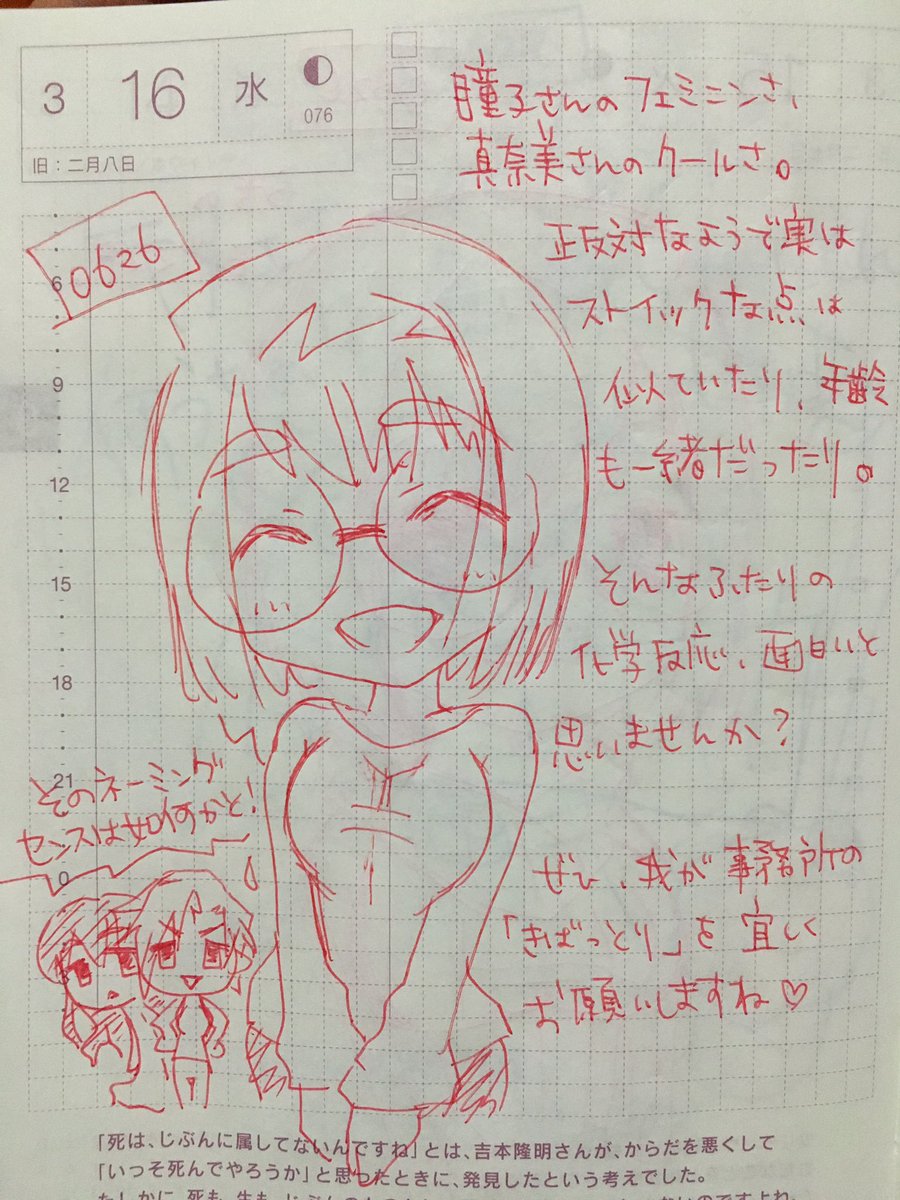 3 16 水
076
旧:二月八日
0626
瞳子さんのフェミニンさ、
真奈美さんのクールさ。
正反対なようで実は
ストイックな点は
似ていたり、年齢
も一緒だったり。
そんなふたりの
化学反応、面白いと
思いませんか?
ぜひ、我が事務所の
「きばっとり」を宜しく
お願いしますね♡
6
9
12
15
18
21
0
そのネーミング
センスは如何かと!
「死は、じぶんに属してないんですね」とは、吉本隆明さんが、からだを悪くして
「いっそ死んでやろうか」と思ったときに、発見したという考えでした。